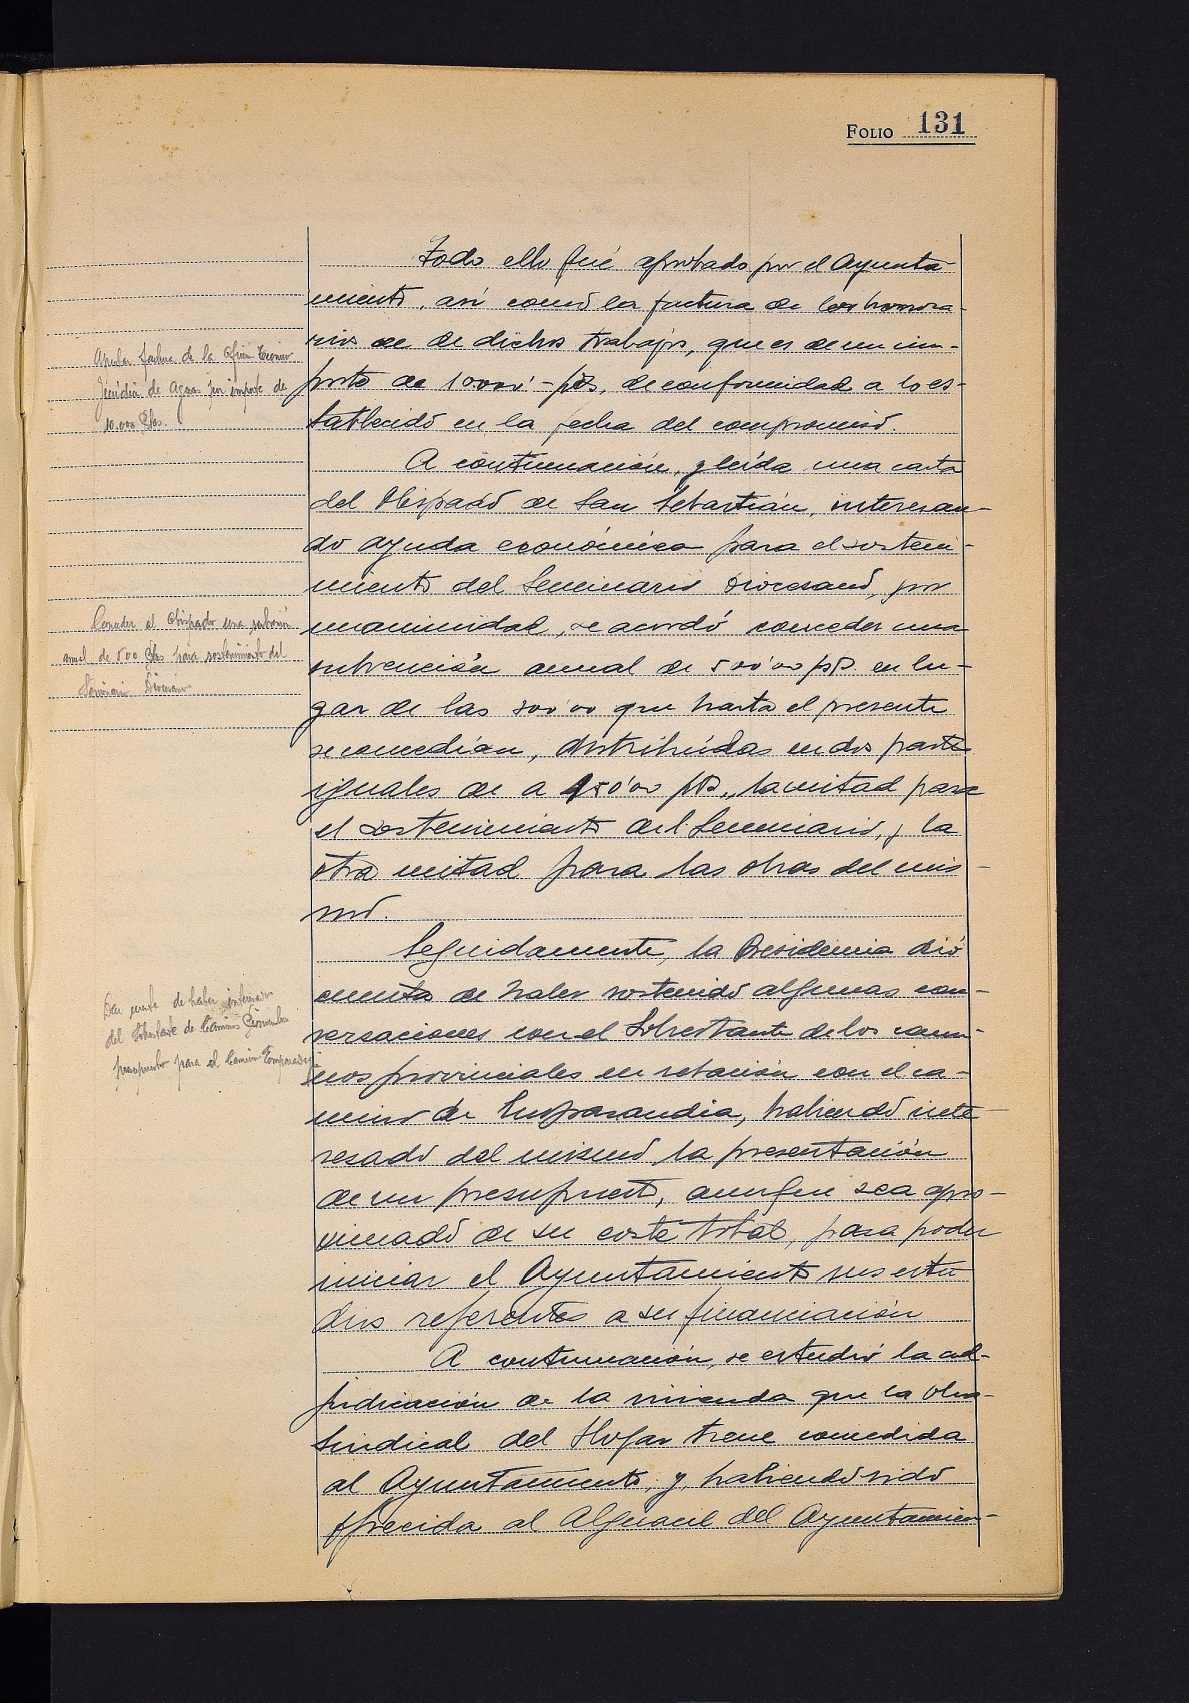 FOLIO 131
Todo ello fué aprobado por el Ayunta
miento, así como la factura de los honora-
rios de de dichos trabajos, que es de un im-
porte de 10000'- pts, de conformidad a lo es-
tablecido en la fecha del compromiso.
A continuación, y leída una carta
del Obispado de San Sebastián, interesan-
do ayuda económica para el sosteni-
miento del Seminario Diocesano, por
unanimidad, se acordó conceder una
subvención anual de 500'00 pts. en lu-
gar de las 300'00 que hasta el presente
se concedían, distribuídas en dos partes
iguales de a 250'00 pts., la mitad para
el sostenimiento del Seminario, y la
otra mitad para las obras del mis-
mo.
Seguidamente, la Presidencia dió
cuenta de haber sostenido algunas con-
versaciones con el Sobrestante de los cami-
nos provinciales en relación con el ca-
mino de, habiendo inte-
resado del mismo la presentación
de un presupuesto, aunque sea apro-
ximado de su coste total, para poder
iniciar el Ayuntamiento sus estu
dios referentes a su financiación
A continuación, se estudió la ad-
judicación de la vivienda que la Obra
Sindical del Hogar tiene concedida
al Ayuntamiento, y, habiendo sido
ofrecida al Alguacil del Ayuntamien-
Aprobar factura de la
de Agua por importe de
10.000 Ptas.
Conceder al Obispado una
anual de 500 Ptas para sostenimiento del
Seminario Diocesano
Dar cuenta de haber interesado
del Sobrestante de Caminos Provinciales
presupuesto para el Camino